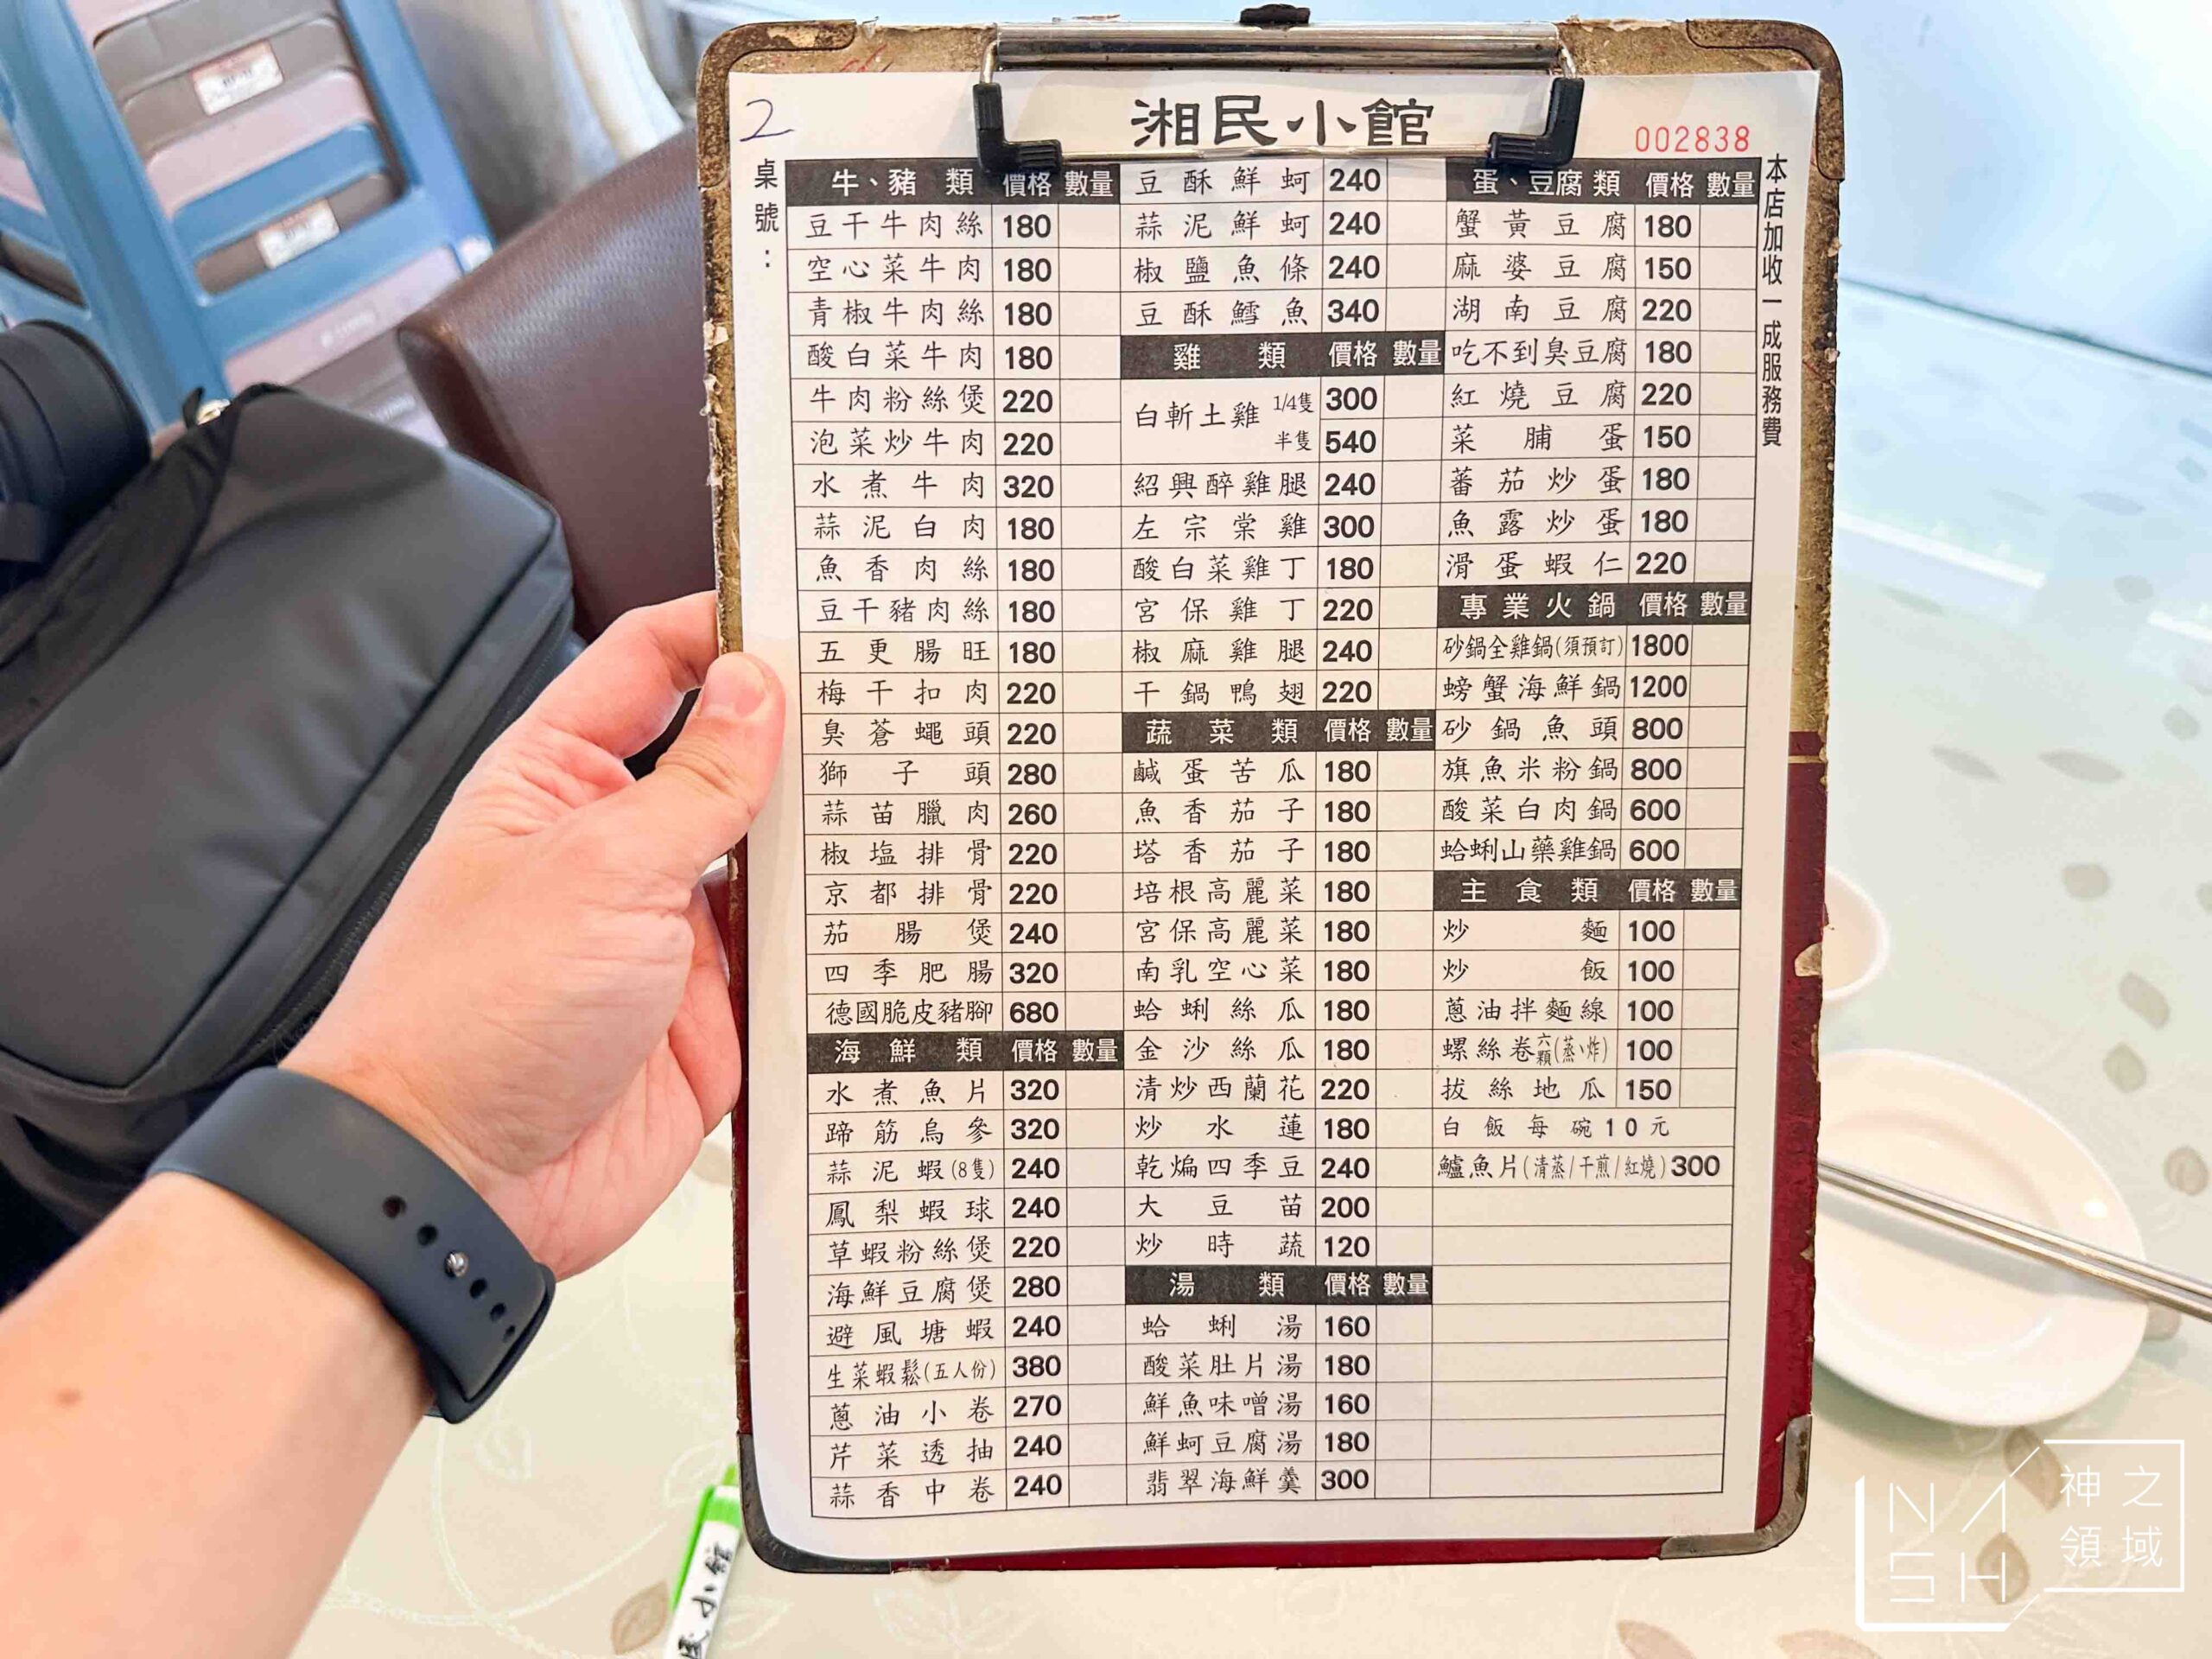 湘民小館
002838
2
桌號：
本店加收一成服務費
牛、豬類 價格 數量
豆干牛肉絲 180
空心菜牛肉 180
青椒牛肉絲 180
酸白菜牛肉 180
牛肉粉絲煲 220
泡菜炒牛肉 220
水煮牛肉 320
蒜泥白肉 180
魚香肉絲 180
豆干豬肉絲 180
五更腸旺 180
梅干扣肉 220
臭蒼蠅頭 220
獅子頭 280
蒜苗臘肉 260
椒塩排骨 220
京都排骨 220
茄腸煲 240
四季肥腸 320
德國脆皮豬腳 680
海鮮類 價格 數量
水煮魚片 320
蹄筋烏參 320
蒜泥蝦(8隻) 240
鳳梨蝦球 240
草蝦粉絲煲 220
海鮮豆腐煲 280
避風塘蝦 240
生菜蝦鬆(五人份) 380
蔥油小卷 270
芹菜透抽 240
蒜香中卷 240
豆酥鮮蚵 240
蒜泥鮮蚵 240
椒鹽魚條 240
豆酥鱈魚 340
雞類 價格 數量
白斬土雞 1/4隻 300
半隻 540
紹興醉雞腿 240
左宗棠雞 300
酸白菜雞丁 180
宮保雞丁 220
椒麻雞腿 240
干鍋鴨翅 220
蔬菜類 價格 數量
鹹蛋苦瓜 180
魚香茄子 180
塔香茄子 180
培根高麗菜 180
宮保高麗菜 180
南乳空心菜 180
蛤蜊絲瓜 180
金沙絲瓜 180
清炒西蘭花 220
炒水蓮 180
乾煸四季豆 240
大豆苗 200
炒時蔬 120
湯類 價格 數量
蛤蜊湯 160
酸菜肚片湯 180
鮮魚味噌湯 160
鮮蚵豆腐湯 180
翡翠海鮮羹 300
蛋、豆腐類 價格 數量
蟹黃豆腐 180
麻婆豆腐 150
湖南豆腐 220
吃不到臭豆腐 180
紅燒豆腐 220
菜脯蛋 150
蕃茄炒蛋 180
魚露炒蛋 180
滑蛋蝦仁 220
專業火鍋 價格 數量
砂鍋全雞鍋(須預訂) 1800
螃蟹海鮮鍋 1200
砂鍋魚頭 800
旗魚米粉鍋 800
酸菜白肉鍋 600
蛤蜊山藥雞鍋 600
主食類 價格 數量
炒麵 100
炒飯 100
蔥油拌麵線 100
螺絲卷六顆(蒸、炸) 100
拔絲地瓜 150
白飯每碗10元
鱸魚片(清蒸/干煎/紅燒) 300
小館
NASH
神之
領域